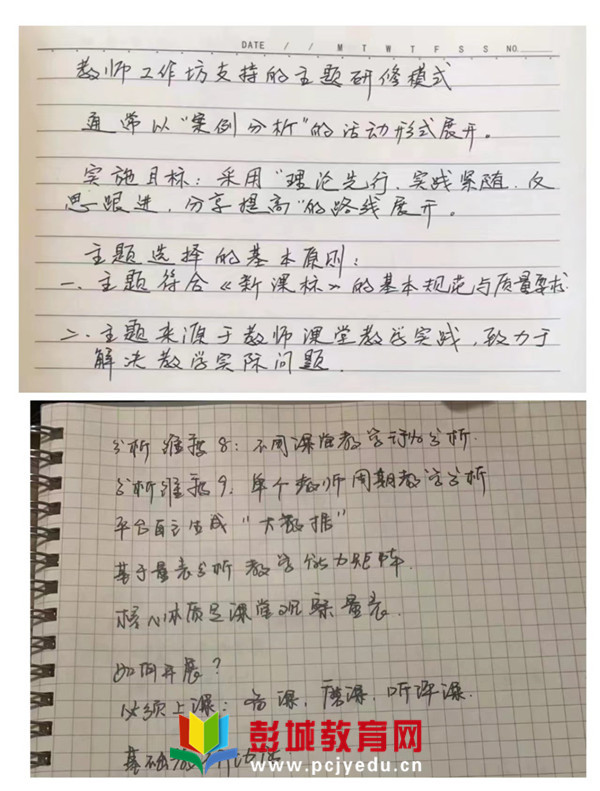 DATE / / M T W T F S S NO.
教师工作坊支持的主题研修模式
通常以"案例分析"的活动形式展开。
实施目标：采用"理论先行、实践紧随、反
思跟进、分享提高"的路线展开。
主题选择的基本原则：
一、主题符合《新课标》的基本规范与质量要求.
二、主题来源于教师课堂教学实践，致力于
解决教学实际问题.
分析维数8：不同课堂教学行为分析.
分析维数9：单个教师周期教学分析
平台自主生成"大数据"
基于量表分析教学能力矩阵.
核心体质是课堂观察量表.
如何开展？
必须上课：备课、磨课、听评课.
基础教
彭城教育网
www.pcjyedu.cn